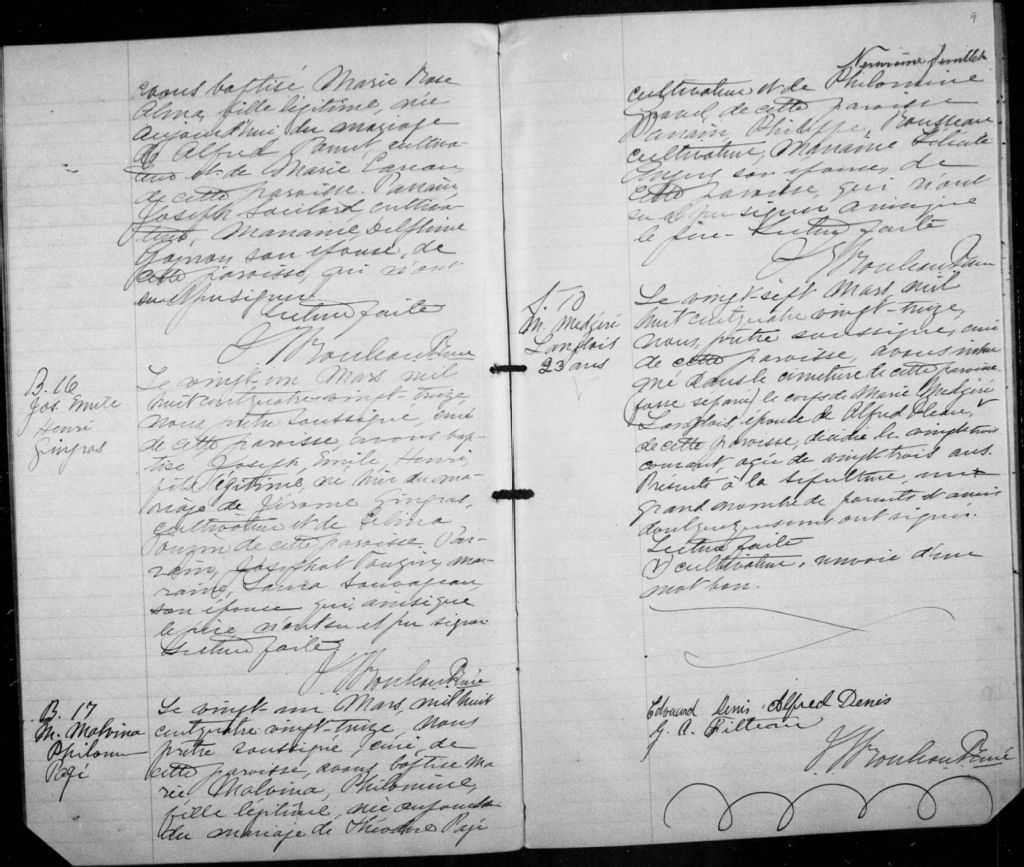 avons baptisé Marie Rose
Alma, fille légitime, née
aujourd'hui du mariage
de Alfred cultiva-
teur et de Marie
de cette paroisse. Parrain
Joseph Soulard, cultiva-
teur, Marraine Delphine
Gagnon son épouse, de
cette paroisse, qui n'ont
su et pu signer
Lecture faite
J Rouleau Ptre Curé
B. 16
Jos. Emile
Henri
Gingras
Le vingt-un Mars mil
huit cent quatre vingt-treize,
nous, prêtre soussigné, curé
de cette paroisse, avons bap-
tisé Joseph, Emile, Henri,
fils légitime, né hier du ma-
riage de Jérôme Gingras,
cultivateur et de Célina
de cette paroisse. Par-
rain, Josephat mar-
raine, Laura Sauvageau,
son épouse qui, ainsi que
le père, n'ont su et pu signer
Lecture faite
J Rouleau Ptre Curé
B. 17
M. Malvina
Philom
Pagé
Le vingt un Mars, mil huit
cent quatre vingt-treize, nous
prêtre soussigné curé, de
cette paroisse, avons baptisé Ma
rie Malvina, Philomine,
fille légitime, née aujourd'hui
du mariage de Théodore Pagé
9
Neuvième feuillet
cultivateur et de Philomine
de cette paroisse
Parrain, Philippe, Rousseau
cultivateur, Marraine
son épouse, de
cette paroisse, qui n'ont
su et pu signer ainsi que
le père - Lecture faite
J Rouleau Ptre
S. 10
M. Medgéré
Langlois
23 ans
Le vingt-sept Mars, mil
huit cent quatre vingt-treize,
nous, prêtre soussigné, curé
de cette paroisse, avons inhu
mé dans le cimetière de cette paroisse,
fosse séparée, le corps de Marie Medgéré
Langlois, épouse de Alfred
de cette paroisse, décédée le vingt trois
courant, agée de vingt trois ans.
Présents à la sépulture, un
grand nombre de parents et amis
dont quelques uns ont signés.
Lecture faite
cultivateur, renvoie d'un
mot bon.
Edouard Denis Alfred Denis
G. A. Filteau
J Rouleau Ptre Curé